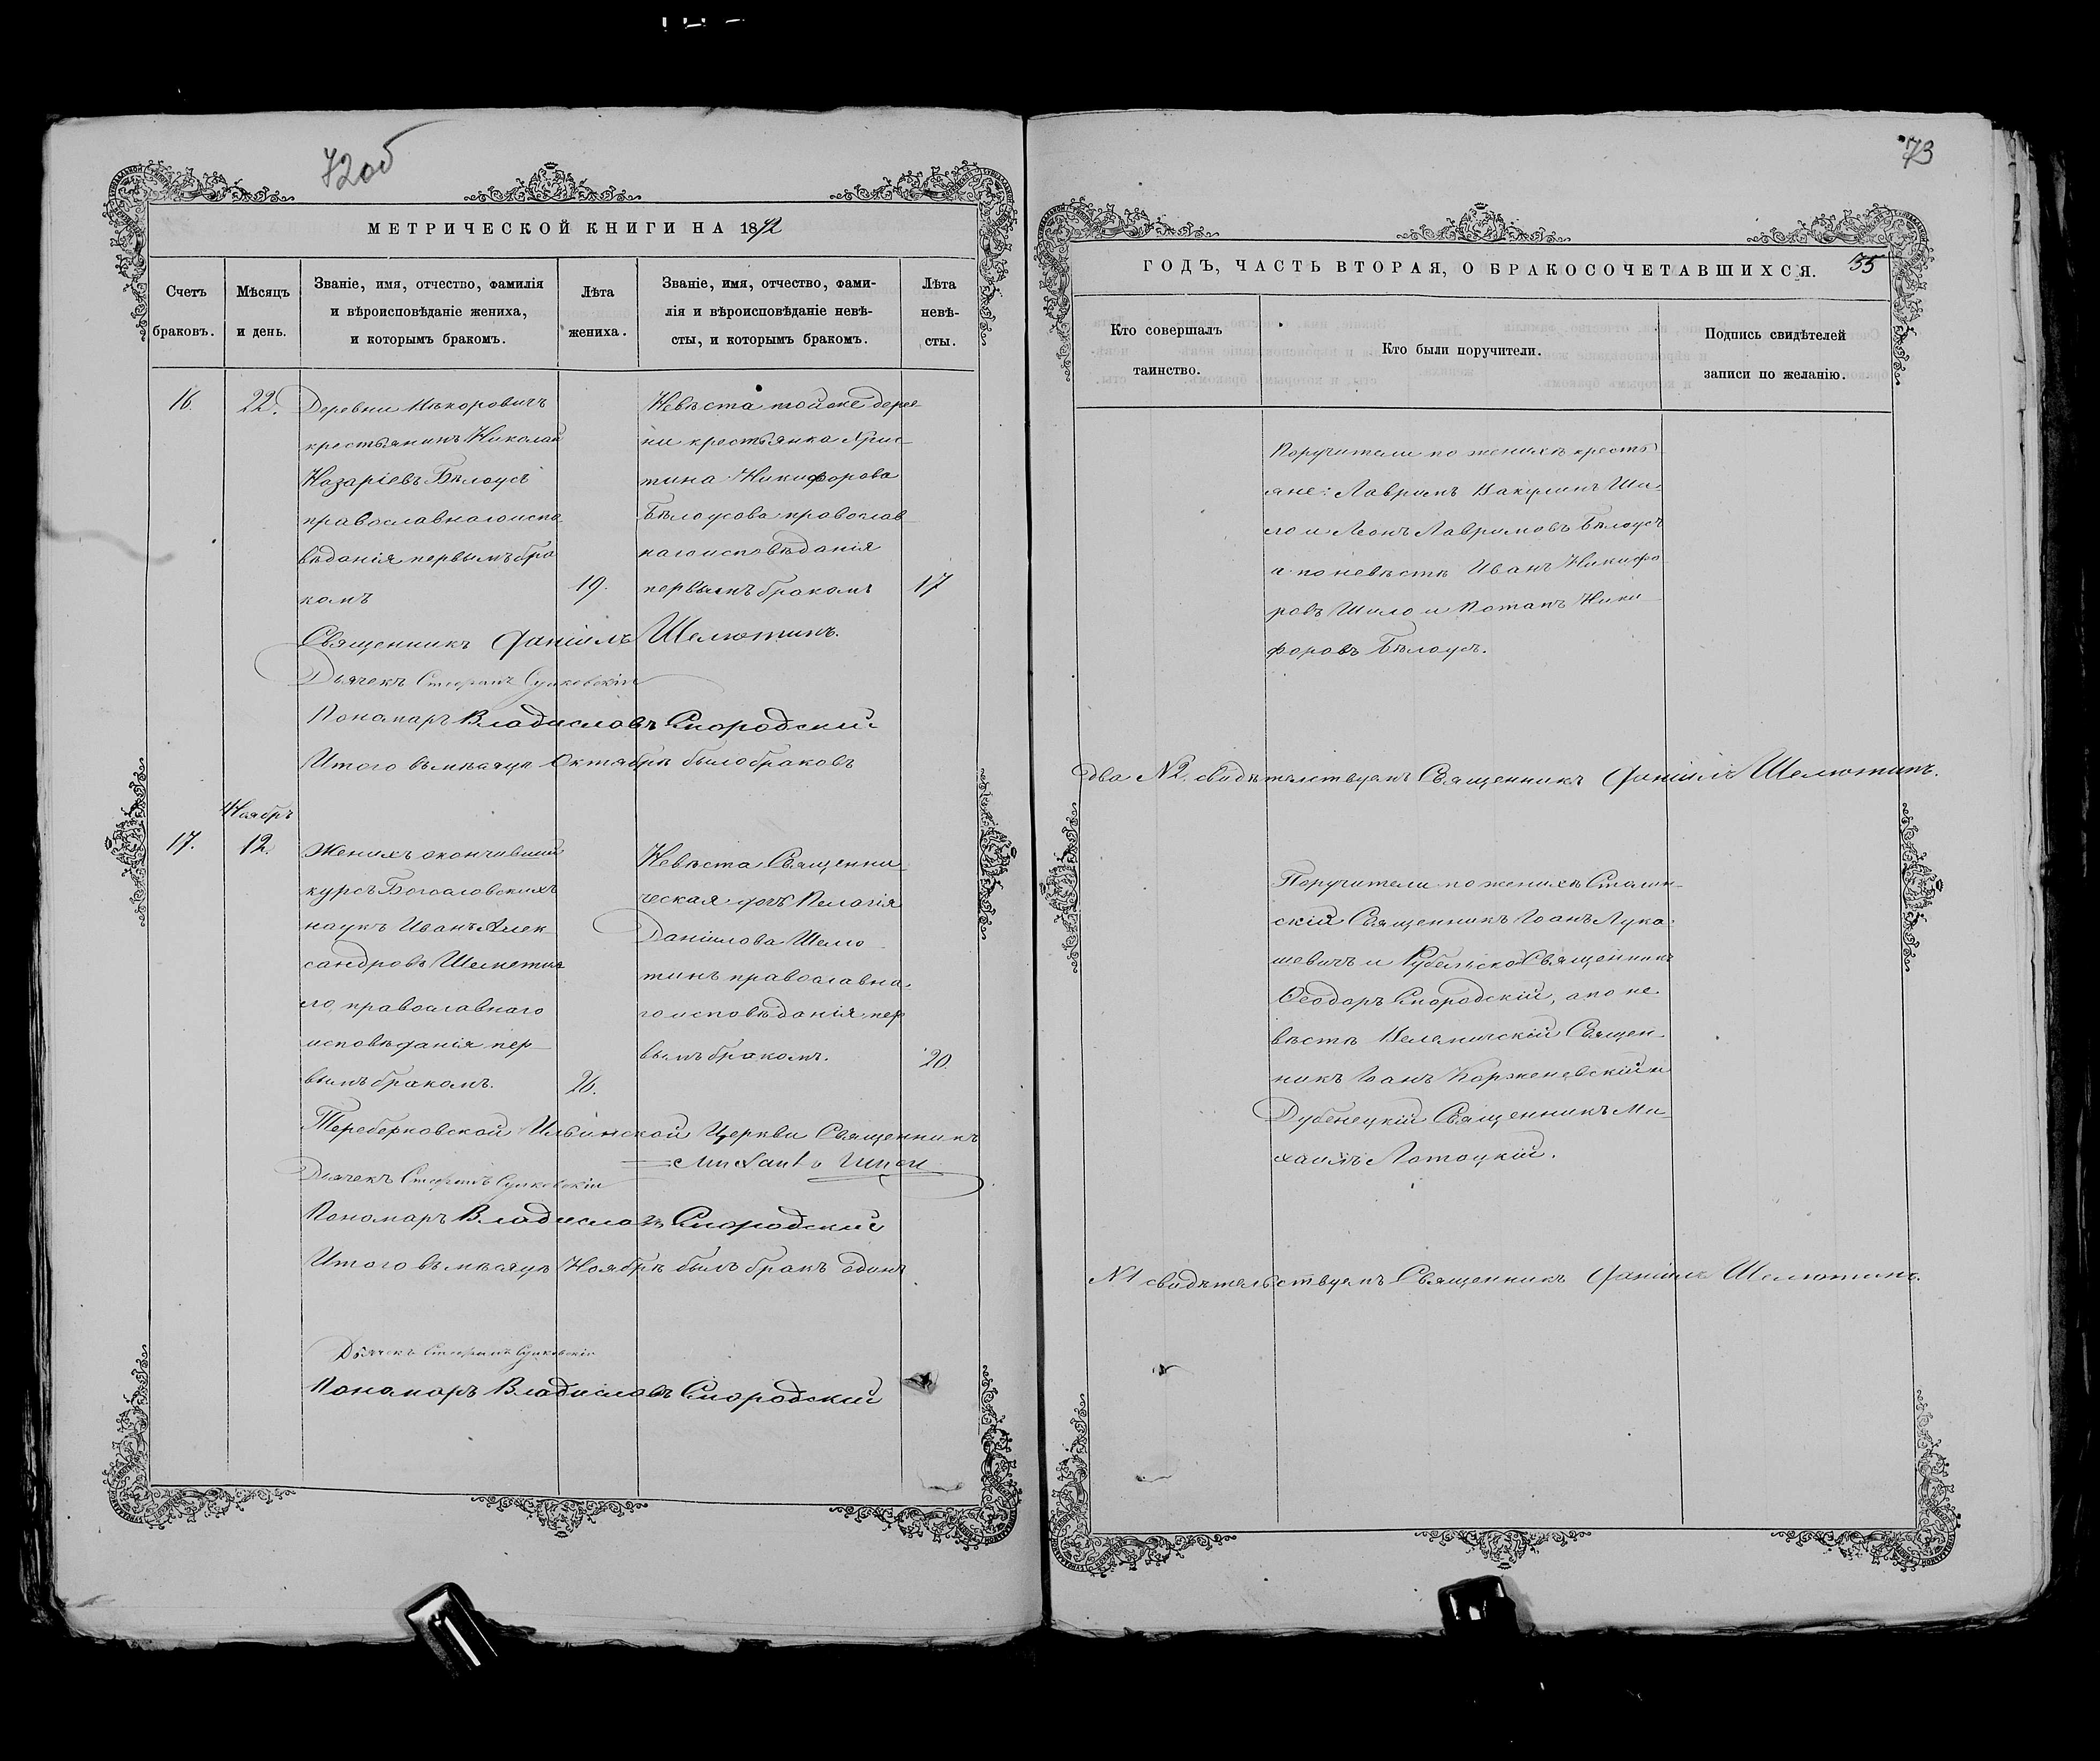 72об
МЕТРИЧЕСКОЙ КНИГИ НА 1872
Счетъ браковъ.
Мѣсяцъ и день.
Званіе, имя, отчество, фамилія
и вѣроисповѣданіе жениха,
и которымъ бракомъ.
Лѣта жениха.
Званіе, имя, отчество, фами-
лія и вѣроисповѣданіе невѣ-
сты, и которымъ бракомъ.
Лѣта невѣ-
сты.
16.
22.
Деревни
крестьянинъ Николай
Назаріевъ Бѣлоусъ
православнаго испо
вѣданія первымъ бра
комъ
19.
Невѣста тойже дерев
ни крестьянка Хрис-
тина Никифорова
Бѣлоусова православ
наго исповѣданія
первымъ бракомъ
17
Священникъ Даніилъ Шелютинъ.
Дьячекъ Стефанъ Сулковскій
Пономарь Владиславъ Смородскій
Итого въ мѣсяцѣ Октябрѣ было браковъ
Ноябрь
17.
12.
Женихъ окончившій
курсъ Богословскихъ
наукъ Иванъ Алек
сандровъ Шеметил
ло, православнаго
исповѣданія пер-
вымъ бракомъ.
26.
Невѣста Священни
ческая дочь Пелагія
Даніилова Шелю
тинъ православна
го исповѣданія пер
вымъ бракомъ.
20.
Теребежовской Ильинской Церкви Священникъ
Дьячекъ Стефанъ Сулковскій
Пономарь Владиславъ Смородскій
Итого въ мѣсяцѣ Ноябрѣ былъ бракъ одинъ
Дьячекъ Стефанъ Сулковскій
Пономарь Владиславъ Смородскій
73
ГОДЪ, ЧАСТЬ ВТОРАЯ, О БРАКОСОЧЕТАВШИХСЯ.
35
Кто совершалъ
таинство.
Кто были поручители.
Подпись свидѣтелей
записи по желанію.
Поручители по женихѣ кресть
яне: Лавринъ Вакулинъ Ши-
ло и Леонъ Лавримовъ Бѣлоусъ
а по невѣстѣ Иванъ Никифо
ровъ Шило и Потапъ Ники
форовъ Бѣлоусъ.
Два №2. свидѣтельствуемъ Священникъ Даніилъ Шелютинъ.
Поручители по женихѣ Столин-
скій Священникъ Іоанъ Лука-
шевичъ и Рубельской Священникъ
Ѳеодоръ Смородскій, а по не
вѣстѣ Велемичскій Священ-
никъ Іоанъ Корженевскій и
Дубенецкій Священникъ Ми
хаилъ Лотоцкій.
№1 свидѣтельствуемъ Священникъ Даніилъ Шелютинъ.